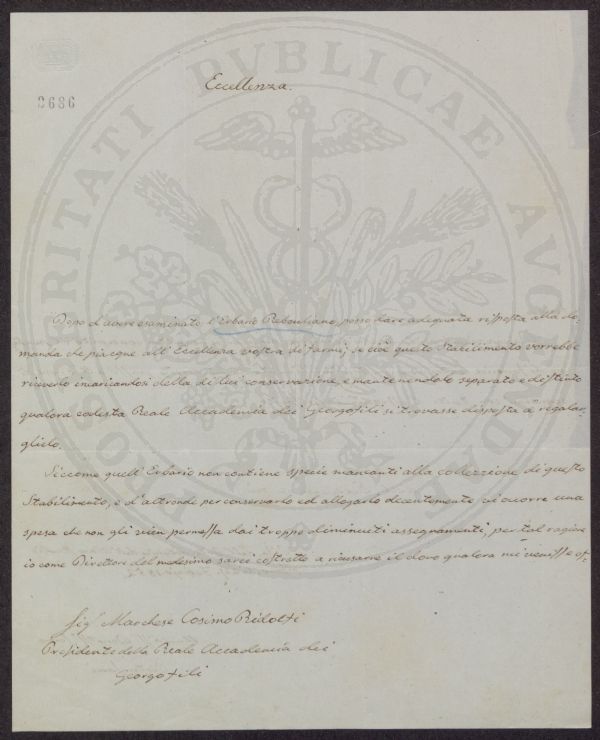 PROSPERITATI PVBLICAE AVGENDAE
0686
Eccellenza.
Dopo d'avere esaminato l'Erbario Rebouliano posso dare adeguata risposta alla do-
manda che piacque all'Eccellenza vostra di farmi, se cioè questo Stabilimento vorrebbe
riceverlo incaricandosi della di lui conservazione, e mantenendolo separato e distinto
qualora codesta Reale Accademia dei Georgofili si trovasse disposta a regalar-
glielo.
Siccome quell'Erbario non contiene specie mancanti alla collezzione di questo
Stabilimento, e d'altronde per conservarlo ed allogarlo decentemente vi occorre una
spesa che non gli vien permessa dai troppo diminuiti assegnamenti, per tal ragione
io come Direttore del medesimo sarei costretto a ricusarne il dono qualora mi venisse of-
Sigr Marchese Cosimo Ridolfi
Presidente della Reale Accademia dei
Georgofili